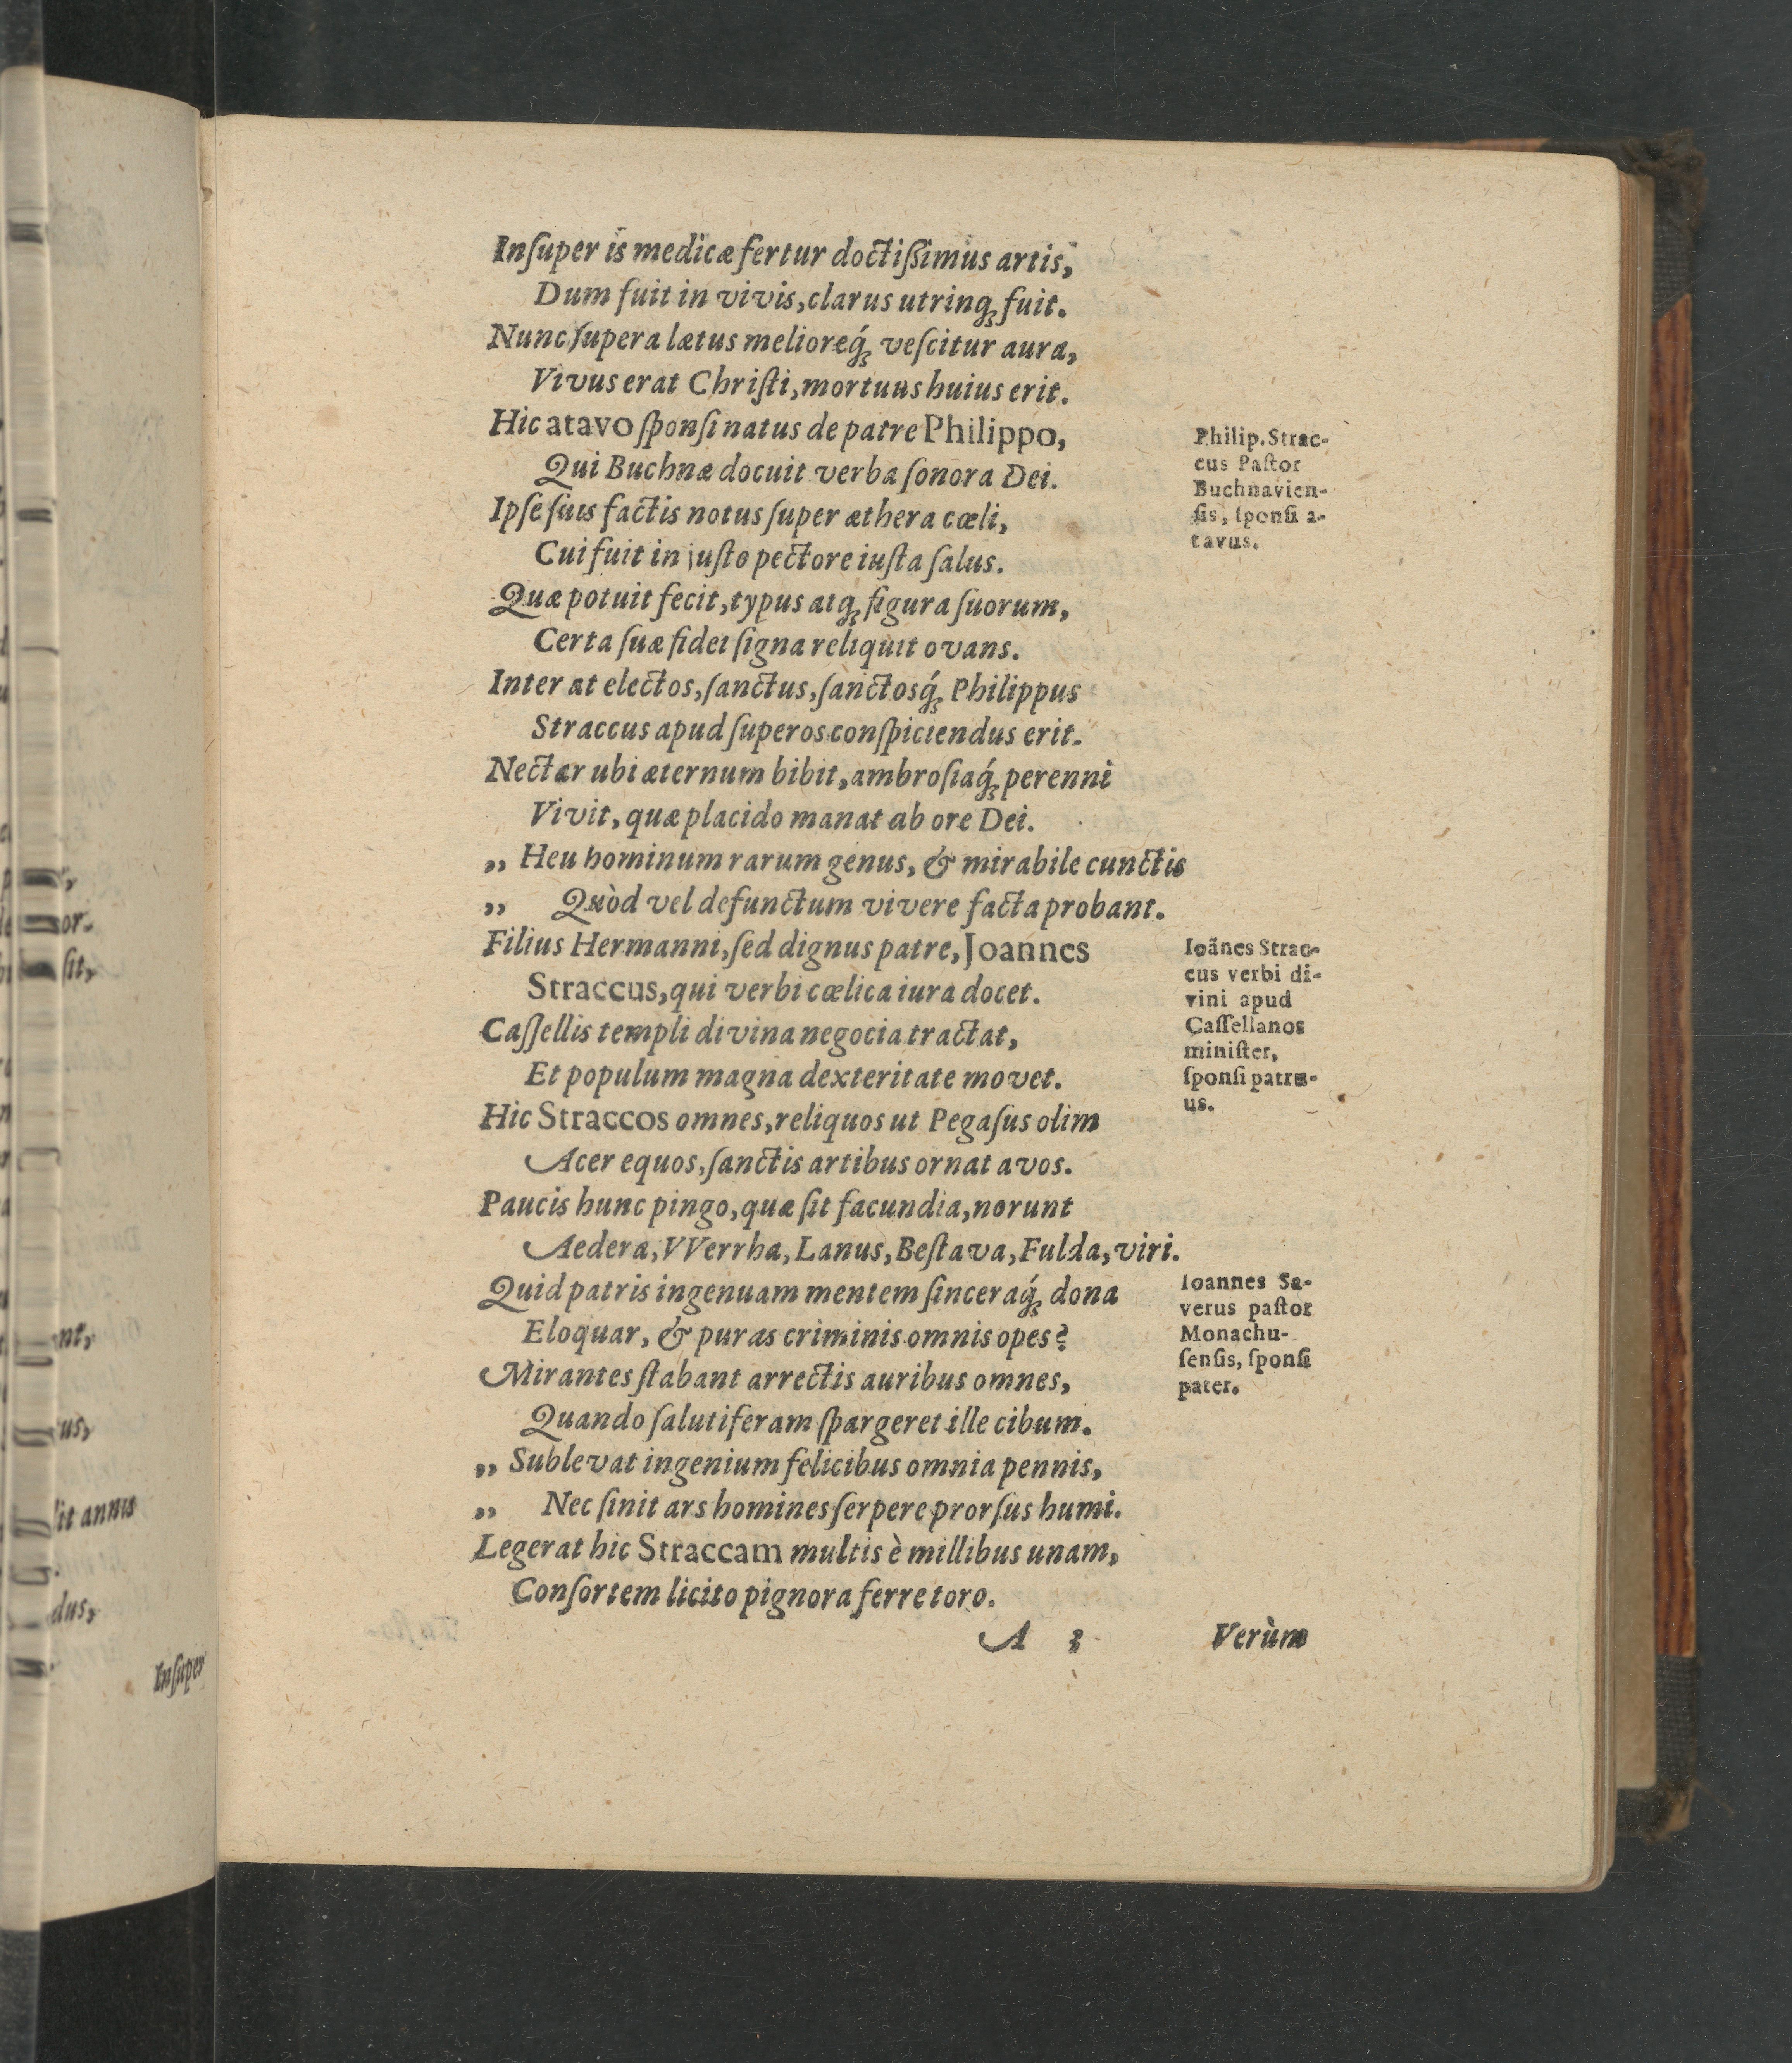 Inſuper is medicæ fertur doctiſſimus artis,
Dum fuit in vivis, clarus utrinq; fuit.
Nunc ſupera lætus melioreq́; veſcitur aura,
Vivus erat Chriſti, mortuus huius erit.
Hic atavo ſponſi natus de patre Philippo,
Qui Buchnæ docuit verba ſonora Dei.
Ipſe ſuis factis notus ſuper æthera cœli,
Cui fuit in juſto pectore iuſta ſalus.
Quæ potuit fecit, typus atq; figura ſuorum,
Certa ſuæ fidei ſigna reliquit ovans.
Inter at electos, ſanctus, ſanctosq́; Philippus
Straccus apud ſuperos conſpiciendus erit.
Nectar ubi æternum bibit, ambroſiaq́; perenni
Vivit, quæ placido manat ab ore Dei.
„ Heu hominum rarum genus, & mirabile cunctis
„ Quòd vel defunctum vivere facta probant.
Filius Hermanni, ſed dignus patre, Joannes
Straccus, qui verbi cœlica iura docet.
Caſſellis templi divina negocia tractat,
Et populum magna dexteritate movet.
Hic Straccos omnes, reliquos ut Pegaſus olim
Acer equos, ſanctis artibus ornat avos.
Paucis hunc pingo, quæ ſit facundia, norunt
Aedera, VVerrha, Lanus, Beſtava, Fulda, viri.
Quid patris ingenuam mentem ſinceraq́; dona
Eloquar, & puras criminis omnis opes?
Mirantes ſtabant arrectis auribus omnes,
Quando ſalutiferam ſpargeret ille cibum.
„ Sublevat ingenium felicibus omnia pennis,
„ Nec ſinit ars homines ſerpere prorſus humi.
Legerat hic Straccam multis è millibus unam,
Conſortem licito pignora ferre toro.
A
Verùm
Philip. Strac-
cus Paſtor
Buchnavien-
ſis, ſponſi a-
tavus.
Ioãnes Strac-
cus verbi di-
vini apud
Caſſellanos
miniſter,
ſponſi patru-
us.
Ioannes Sa-
verus paſtor
Monachu-
ſenſis, ſponſi
pater.
or.
ſit,
nt,
us,
it annus
dus,
Inſuper